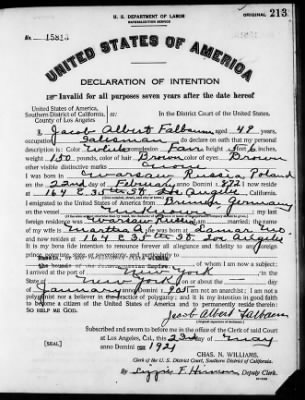 U. S. DEPARTMENT OF LABOR
NATURALIZATION SERVICE
ORIGINAL 213
No.
UNITED STATES OF AMERICA
DECLARATION OF INTENTION
Invalid for all purposes seven years after the date hereof
United States of America,
Southern District of California,
County of Los Angeles
In the District Court of the United States.
I, Jacob Albert Falbaum, aged 49 years,
occupation Salesman, do declare on oath that my personal
description is: Color White, complexion Fair, height 5 feet inches,
weight 150 pounds, color of hair Brown, color of eyes Brown
other visible distinctive marks
I was born in Warsaw Russia Poland
on the 22nd day of February, anno Domini 1872; I now reside
at 164 E. 35th St. Los Angeles, California.
I emigrated to the United States of America from Bremen Germany
on the vessel; my last
foreign residence was Warsaw Russia; I am married; the name
of my wife is Martha; she was born at Lamar Mo.
and now resides at 164 E. 35th St. Los Angeles
It is my bona fide intention to renounce forever all allegiance and fidelity to any foreign
prince, potentate, state, or sovereignty, and particularly to
, of whom I am now a subject:
I arrived at the port of New York, in the
State of New York, on or about the day
of January, anno Domini 1905; I am not an anarchist; I am not a
polygamist nor a believer in the practice of polygamy; and it is my intention in good faith
to become a citizen of the United States of America and to permanently reside therein:
SO HELP ME GOD.
Jacob Albert Falbaum
Subscribed and sworn to before me in the office of the Clerk of said Court
at Los Angeles, Cal., this 23rd day of May
[SEAL]
anno Domini 1921
CHAS. N. WILLIAMS,
Clerk of the U. S. District Court, Southern District of California.
By Deputy Clerk.